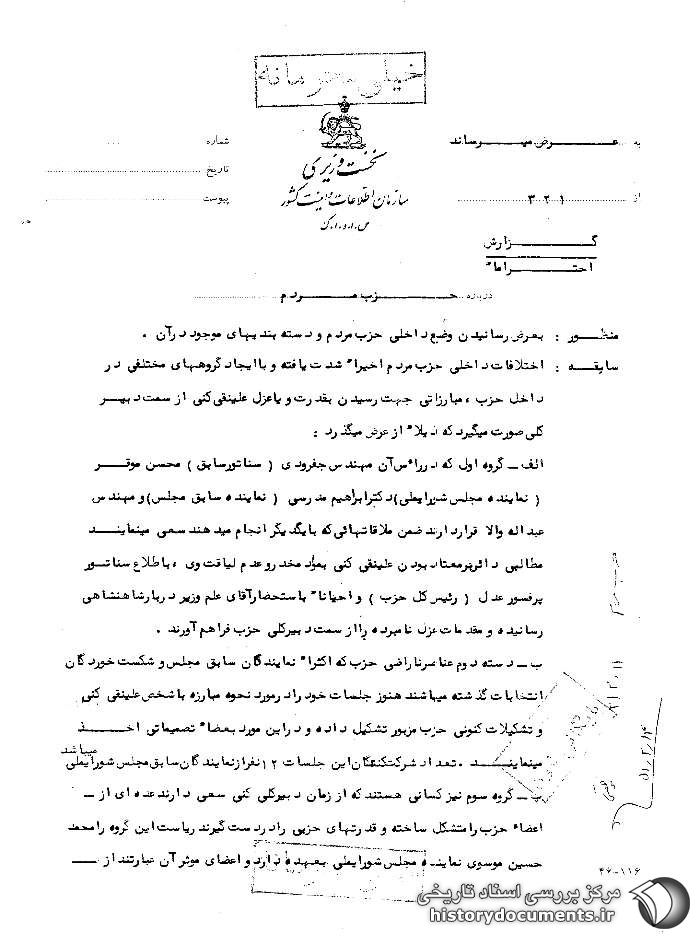 خیلی محرمانه
به عرض میرساند
شماره
نخست وزیری
تاریخ
سازمان اطلاعات و امنیت کشور
از ۳۲۱
پیوست
س.ا.و.ا.ک
گزارش
احتراما"
درباره حزب مردم
منظور : بعرض رسانیدن وضع داخلی حزب مردم و دسته بندیهای موجود در آن .
سابقه : اختلافات داخلی حزب مردم اخیرا" شدت یافته و با ایجاد گروههای مختلفی در
داخل حزب ، مبارزاتی جهت رسیدن بقدرت و یا عزل علینقی کنی از سمت دبیر
کلی صورت میگیرد که ذیلا" از عرض میگذرد :
الف ــ گروه اول که در راس آن مهندس جفرودی ( سناتور سابق ) محسن موقر
( نماینده مجلس شورایملی) دکتر ابراهیم مدرسی ( نماینده سابق مجلس) و مهندس
عبداله والا قرار دارند ضمن ملاقاتهائی که با یکدیگر انجام میدهند سعی مینمایند
مطالبی دائر بر معتاد بودن علینقی کنی بمواد مخدر و عدم لیاقت وی ، باطلاع سناتور
پرفسور عدل ( رئیس کل حزب ) و احیانا" باستحضار آقای علم وزیر دربار شاهنشاهی
رسانیده و مقدمات عزل نامبرده را از سمت دبیرکلی حزب فراهم آورند .
ب ــ دسته دوم عناصر ناراضی حزب که اکثرا" نمایندگان سابق مجلس و شکست خوردگان
انتخابات گذشته میباشند هنوز جلسات خود را در مورد نحوه مبارزه با شخص علینقی کنی
و تشکیلات کنونی حزب مزبور تشکیل داده و در این مورد بعضا" تصمیماتی اخذ
مینمایند . تعداد شرکت کنندگان این جلسات ۱۲ نفر از نمایندگان سابق مجلس شورایملی میباشد
پ ــ گروه سوم نیز کسانی هستند که از زمان دبیرکلی کنی سعی دارند عده ای از ــ
اعضا" حزب را متشکل ساخته و قدرتهای حزبی را در دست گیرند ریاست این گروه را محمد
حسین موسوی نماینده مجلس شورایملی بعهده دارد و اعضای موثر آن عبارتند از ــ
۴۶-۱۱۶
مرکز بررسی اسناد تاریخی
historydocuments.ir